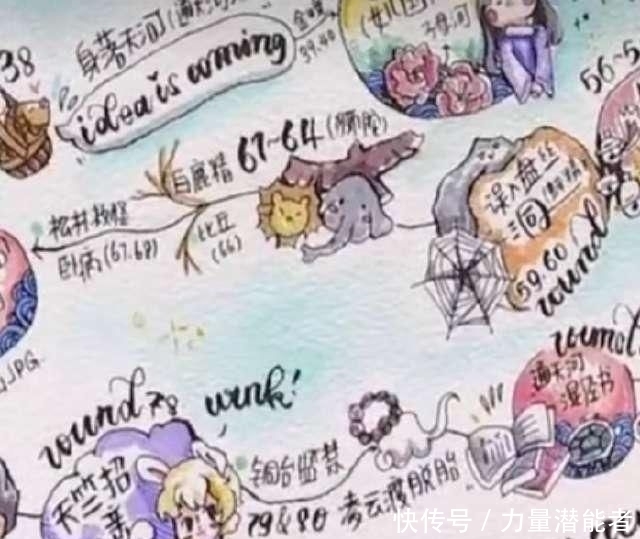 38
身落天河(通天河
idea is coming
金
39.40
(女儿国)
子母河
56~5
白鹿精
61~64(狮驼)
比丘
(66)
卧病(67.68)
误入盘丝
洞
59.60
round
JPG.
round 78
wink!
天竺招
亲
铜台监禁
79&80
凌云渡脱胎
round
通天河
湿经书
快传号 / 力量潜能者